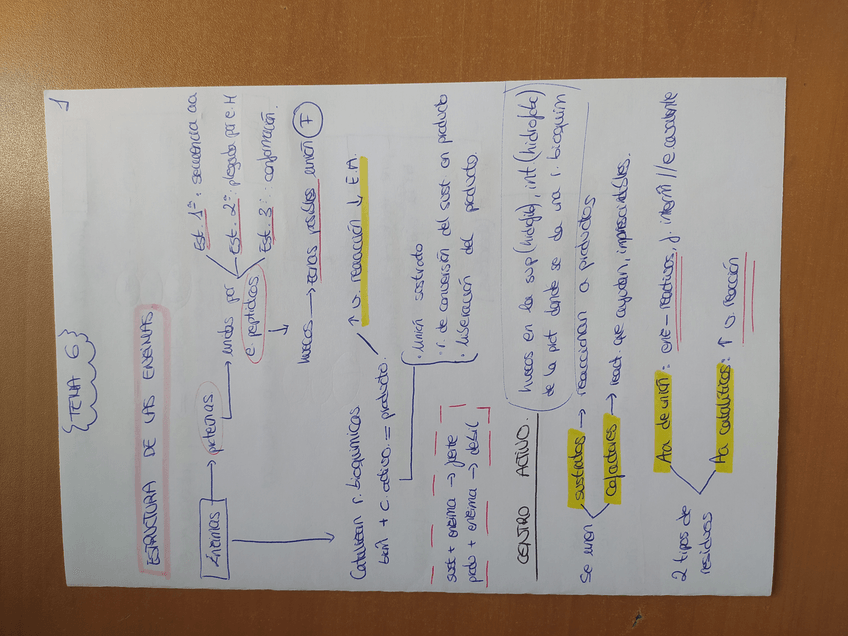 1
{TEMA 6}
ESTRUCTURA DE LAS ENZIMAS
Enzimas → proteínas → unidas por e. peptídicos
Est. 1ª: secuencia aa.
Est. 2ª: plegada por e. H
Est. 3ª: conformación.
↓
huecos → zonas posibles unión (F)
Catalizan r. bioquímicas ↑ v. reacción ↓ E.A.
+ c. activo. = producto.
· unión sustrato
· r. de conversión del sust. en producto
· liberación del producto.
sust + enzima → fuerte
produ + enzima → débil
CENTRO ACTIVO.
huecos en la sup (hidrófila), int (hidrófobo)
de la prot donde se da una r. bioquím
se unen
sustratos → reaccionan a productos
cofactores → react. que ayudan, imprescindibles.
2 tipos de
residuos
Aa de unión: enz - reactivos, f. interm // e covalente
Aa catalíticos: ↑ v. reacción